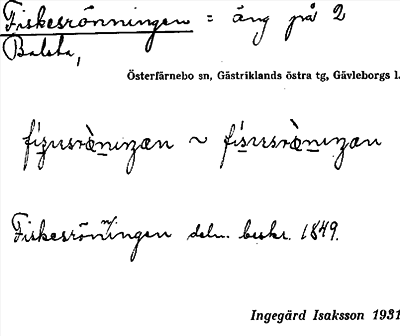 Fiskesrönningen = äng på 2
Balsta,
Österfärnebo sn, Gästriklands östra tg, Gävleborgs l.
~
Fiskesrönningen deln. beskr. 1849.
Ingegärd Isaksson 1931